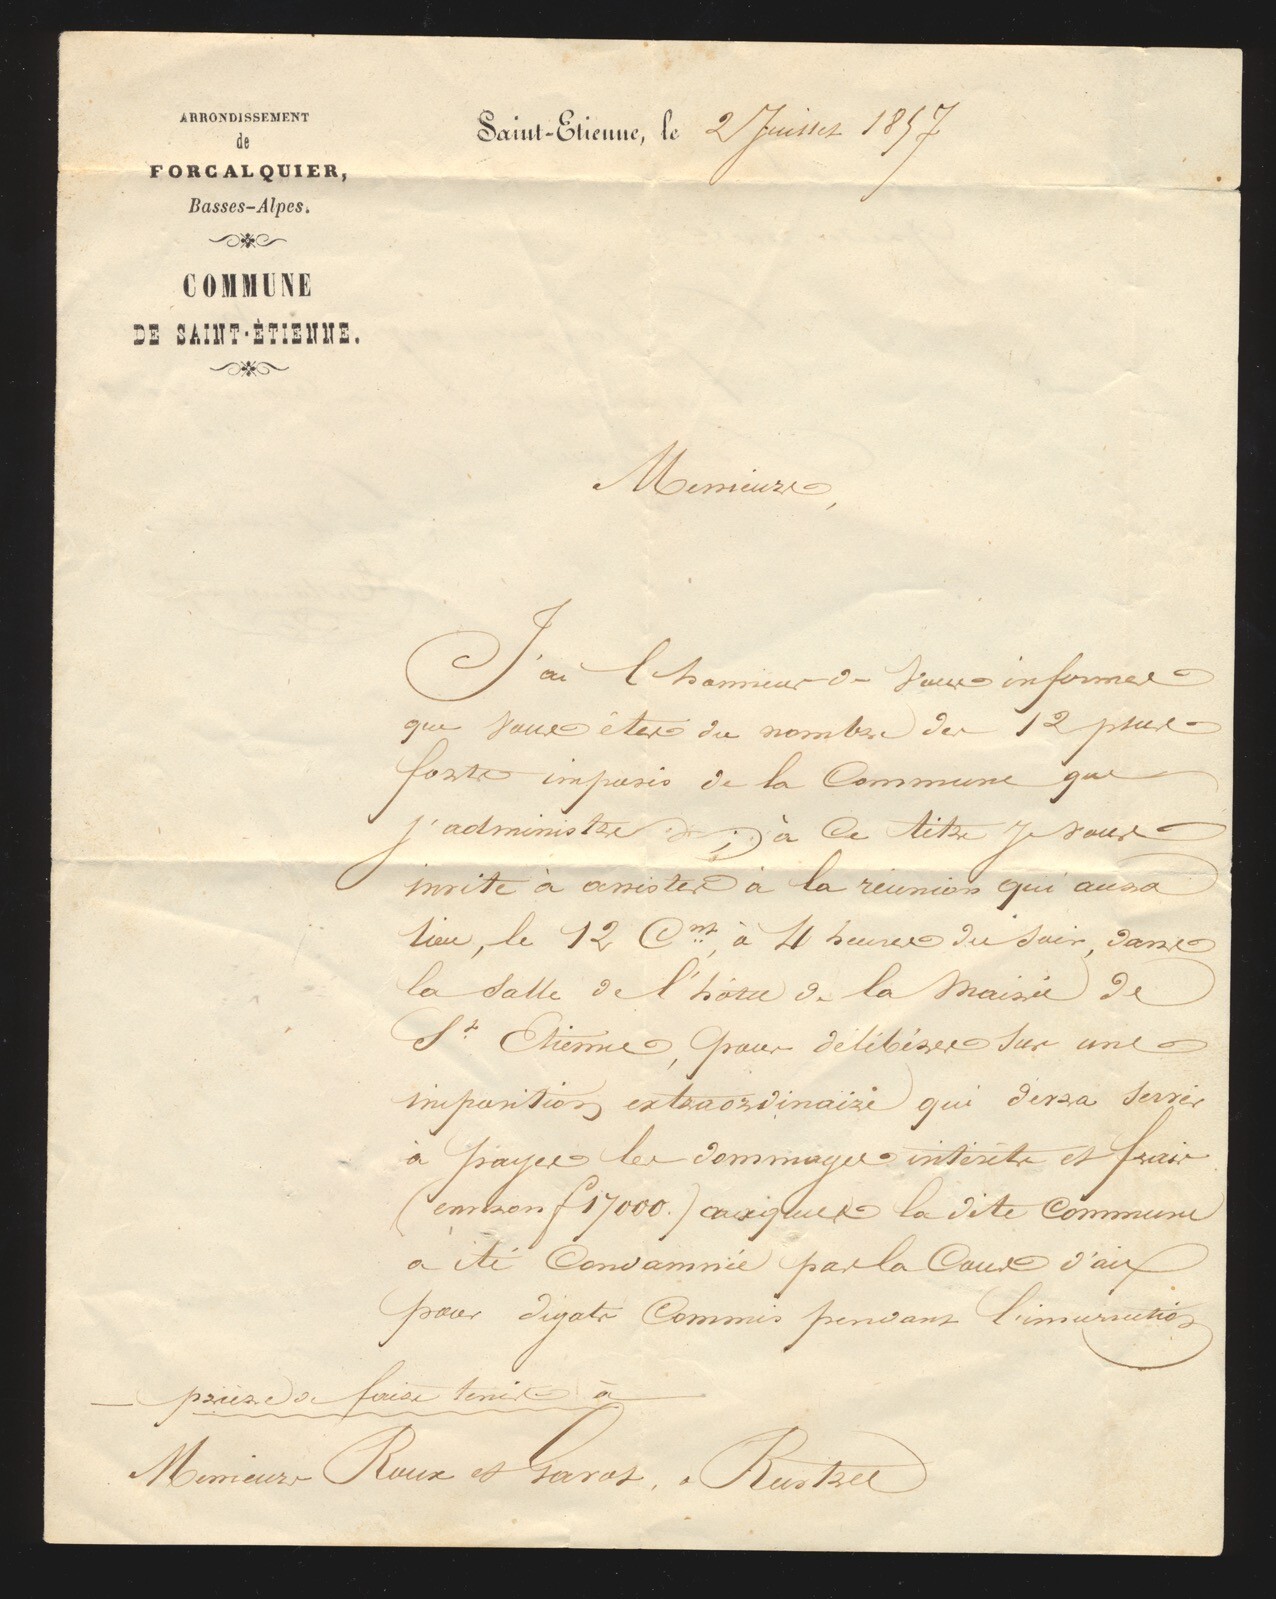 ARRONDISSEMENT
de
FORCALQUIER,
Basses-Alpes.
COMMUNE
DE SAINT-ÉTIENNE.
Saint-Etienne, le 2 Juillet 1857
Messieurs,
J'ai l'honneur de vous informer
que vous êtes du nombre des 12 plus
forts imposés de la Commune que
j'administre ; à ce titre je vous
invite à assister à la réunion qui aura
lieu, le 12 Cnt, à 4 heures du soir, dans
la salle de l'hôtel de la Mairie de
St. Etienne, pour délibérer sur une
imposition extraordinaire qui devra servir
à payer les dommages intérêts et frais
(environ f 17000.) auxquels la dite Commune
a été Condamnée par la Cour d'aix
pour dégats Commis pendant l'insurrection
prière de faire tenir à
Messieurs Roux et Savos, à